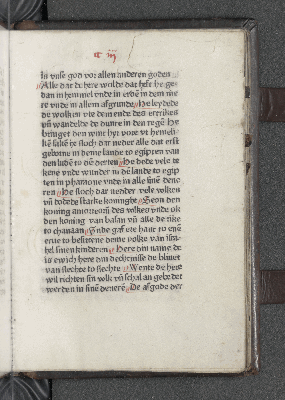 is unse god vor allen anderen goden
Alle dat de here wolde dat heft he ge
dan in hemmel unde in erden in dem me
re unde in allem afgrunde He leydede
de wolken ute dem ende des ertrikes
un wandelde de dunre in den regen He
bringet den wint hir vore ut heme
like he sloch dar neder alle dat erst
geborne in deme lande to egipten van
den luden to den derten He dede vele te
kene unde wunder in den lande to egip
ten in pharaone unde in alle sine dene
ren He sloch dar nedder vele volken
un dodede starke koninghe Seon den
koning amorreorum des volkes unde ok
den koning van basan un alle de rike
to chanaan Unde gaf ere lant to ener
erue to besittene deme volke van isra
hel sinen kinderen Here din name de
is ewich here din dechtnisse de bliuet
van slechte to slechte Wente de here
wil richten sin volk un schal an gebedet
werden in sinen deneren De afgode der